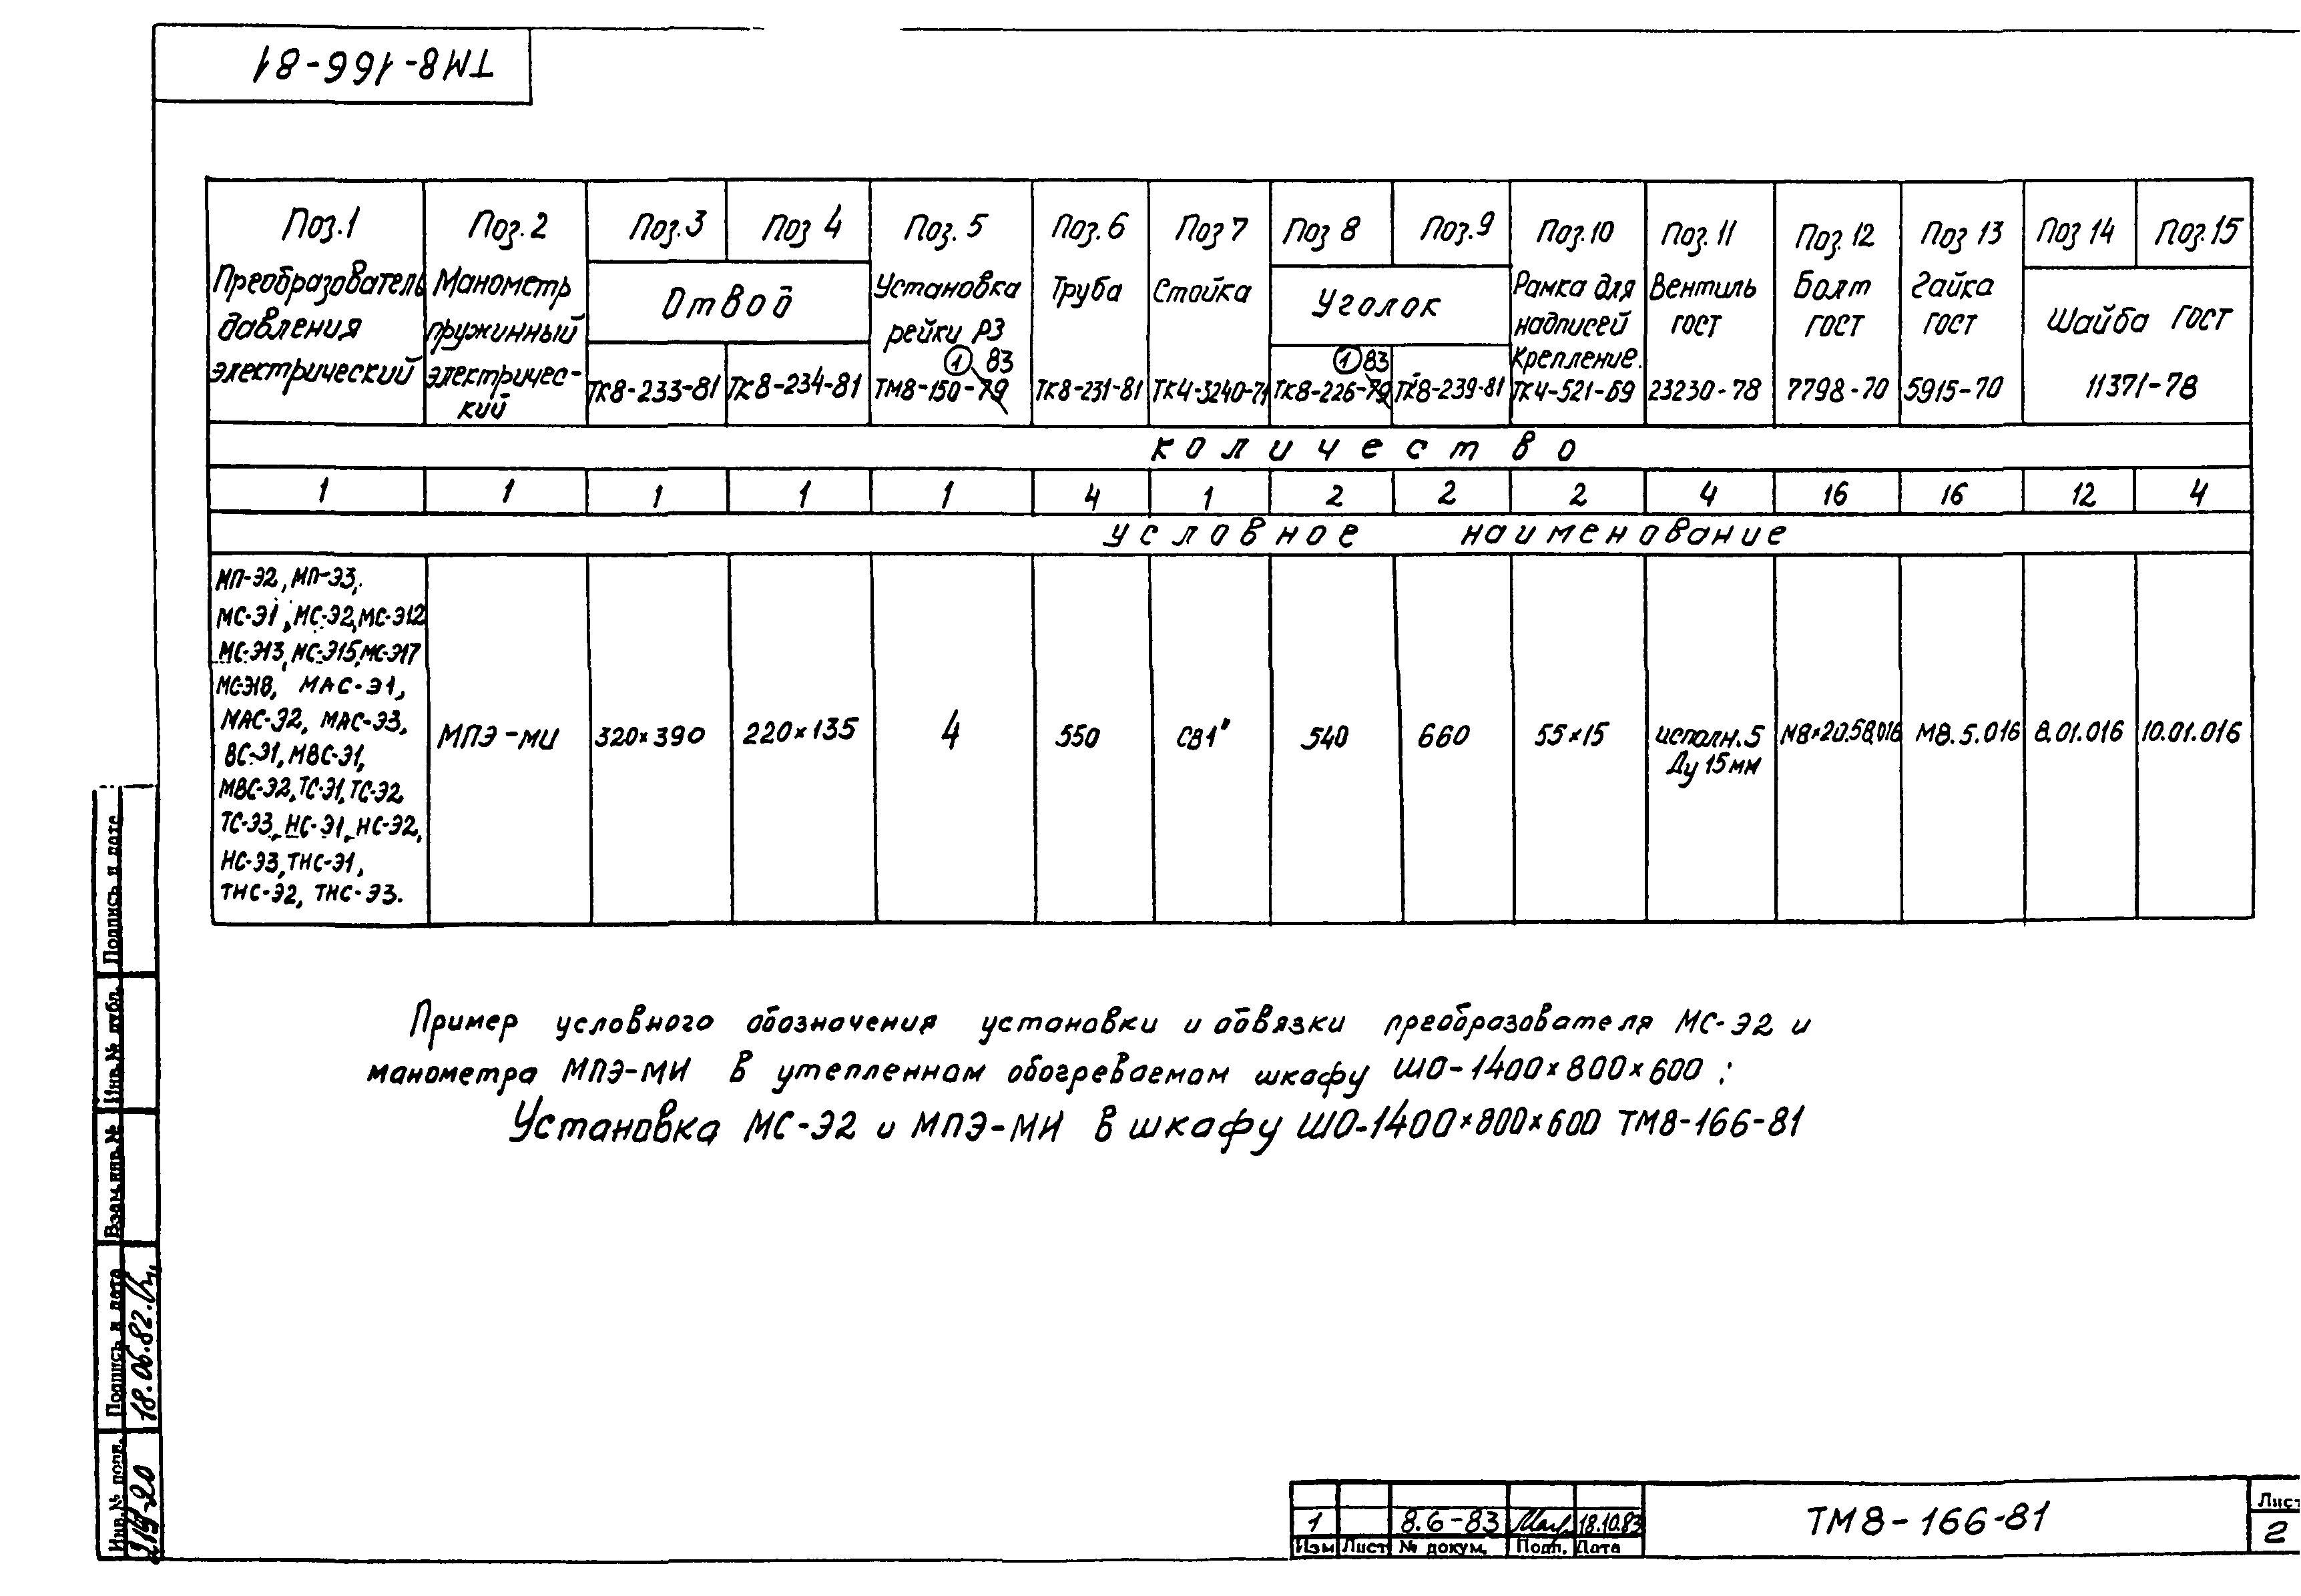 ТМ8-166-81
Поз.1 Поз.2 Поз.3 Поз 4 Поз. 5 Поз.6 Поз 7 Поз 8 Поз.9 Поз.10 Поз. 11 Поз. 12 Поз 13 Поз 14 Поз.15
Преобразователь
давления
электрический
Манометр
пружинный
электричес-
кий
Отвод
ТК8-233-81 ТК8-234-81
Установка
рейки Р3
① 83
ТМ8-150-79
Труба
ТК8-231-81
Стойка
ТК4-3240-71
Уголок
① 83
ТК8-226-79 ТК8-239-81
Рамка для
надписей
Крепление.
ТК4-521-69
Вентиль
ГОСТ
23230-78
Болт
ГОСТ
7798-70
Гайка
ГОСТ
5915-70
Шайба ГОСТ
11371-78
количество
1 1 1 1 1 4 1 2 2 2 4 16 16 12 4
условное наименование
МП-Э2, МП-Э3,
МС-Э1, МС-Э2, МС-Э12
МС-Э13, МС-Э15, МС-Э17
МС-Э18, МАС-Э1,
МАС-Э2, МАС-Э3,
ВС-Э1, МВС-Э1,
МВС-Э2, ТС-Э1, ТС-Э2
ТС-Э3, НС-Э1, НС-Э2,
НС-Э3, ТНС-Э1,
ТНС-Э2, ТНС-Э3.
МПЭ-МИ 320×390 220×135 4 550 СВ1" 540 660 55×15
исполн. 5
Ду 15мм
М8×20.58.016 М8.5.016 8.01.016 10.01.016
Пример условного обозначения установки и обвязки преобразователя МС-Э2 и
манометра МПЭ-МИ в утепленном обогреваемом шкафу ШО-1400×800×600 :
Установка МС-Э2 и МПЭ-МИ в шкафу ШО-1400×800×600 ТМ8-166-81
Подпись и дата
Инв.№ дубл.
Взам.инв.№
Подпись и дата 18.06.82.
Инв.№ подл.
1 8.6-83 18.10.83
Изм Лист № докум. Подп. Дата
ТМ8-166-81
Лист
2